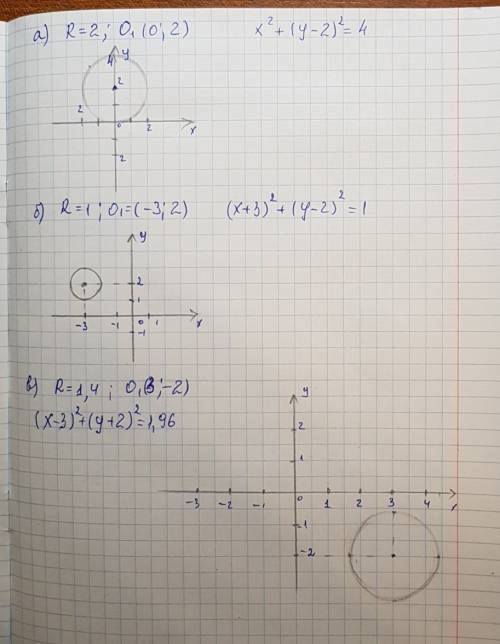 а) R=2; O₁(0; 2) x²+(y-2)²=4
4 y
2
2 0 2 x
2
б) R=1; O₁=(-3; 2) (x+3)²+(y-2)²=1
y
2
1
-3 -1 0 1 x
-1
в) R=1,4; O₁(3; -2)
(x-3)²+(y+2)²=1,96
y
2
1
-3 -2 -1 0 1 2 3 4 x
-1
-2